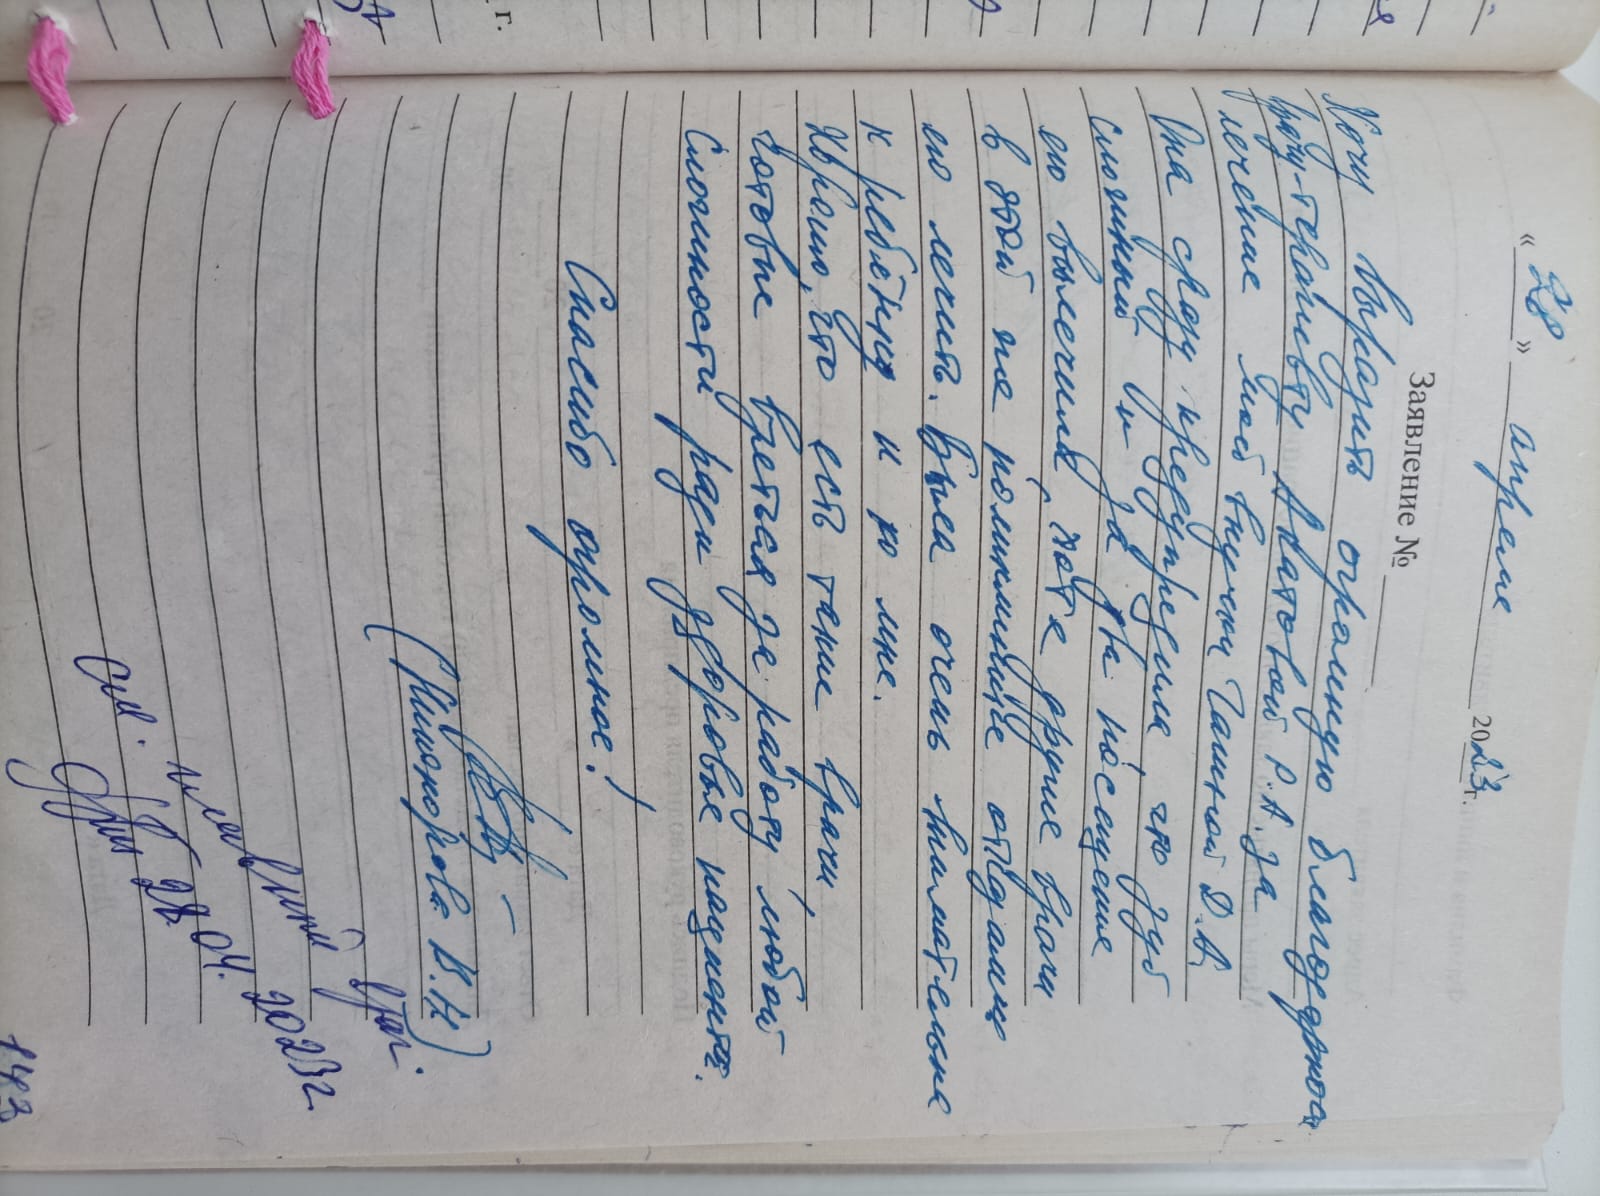 «28» апреля 2023 г.
Заявление № ______
Хочу выразить огромную благодарность
врачу-терапевту Акатовой Р.А. за
лечение моей внучки Гашной Д.А.
Она сразу предупредила, что зуб
сложный и за два посещения
его вылечила, хотя другие врачи
в этой же поликлинике отказались
его лечить. Была очень внимательна
к ребёнку и ко мне.
Хорошо, что есть такие врачи,
готовые взяться за работу любой
сложности ради здоровья пациента.
Спасибо огромное!
(Никонорова В.Н)
см. главный врач.
28.04.2023г.
г.
143